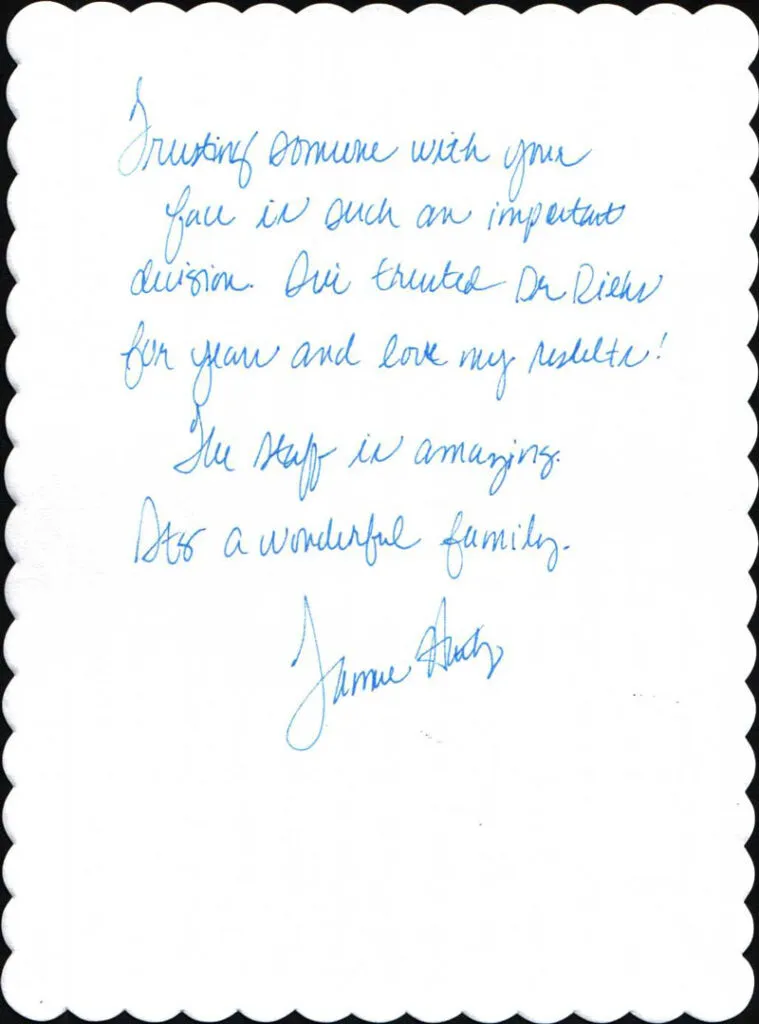 Trusting someone with your
face is such an important
decision. I've trusted Dr Rieks
for years and love my results!
The staff is amazing.
Its a wonderful family.
Jamie